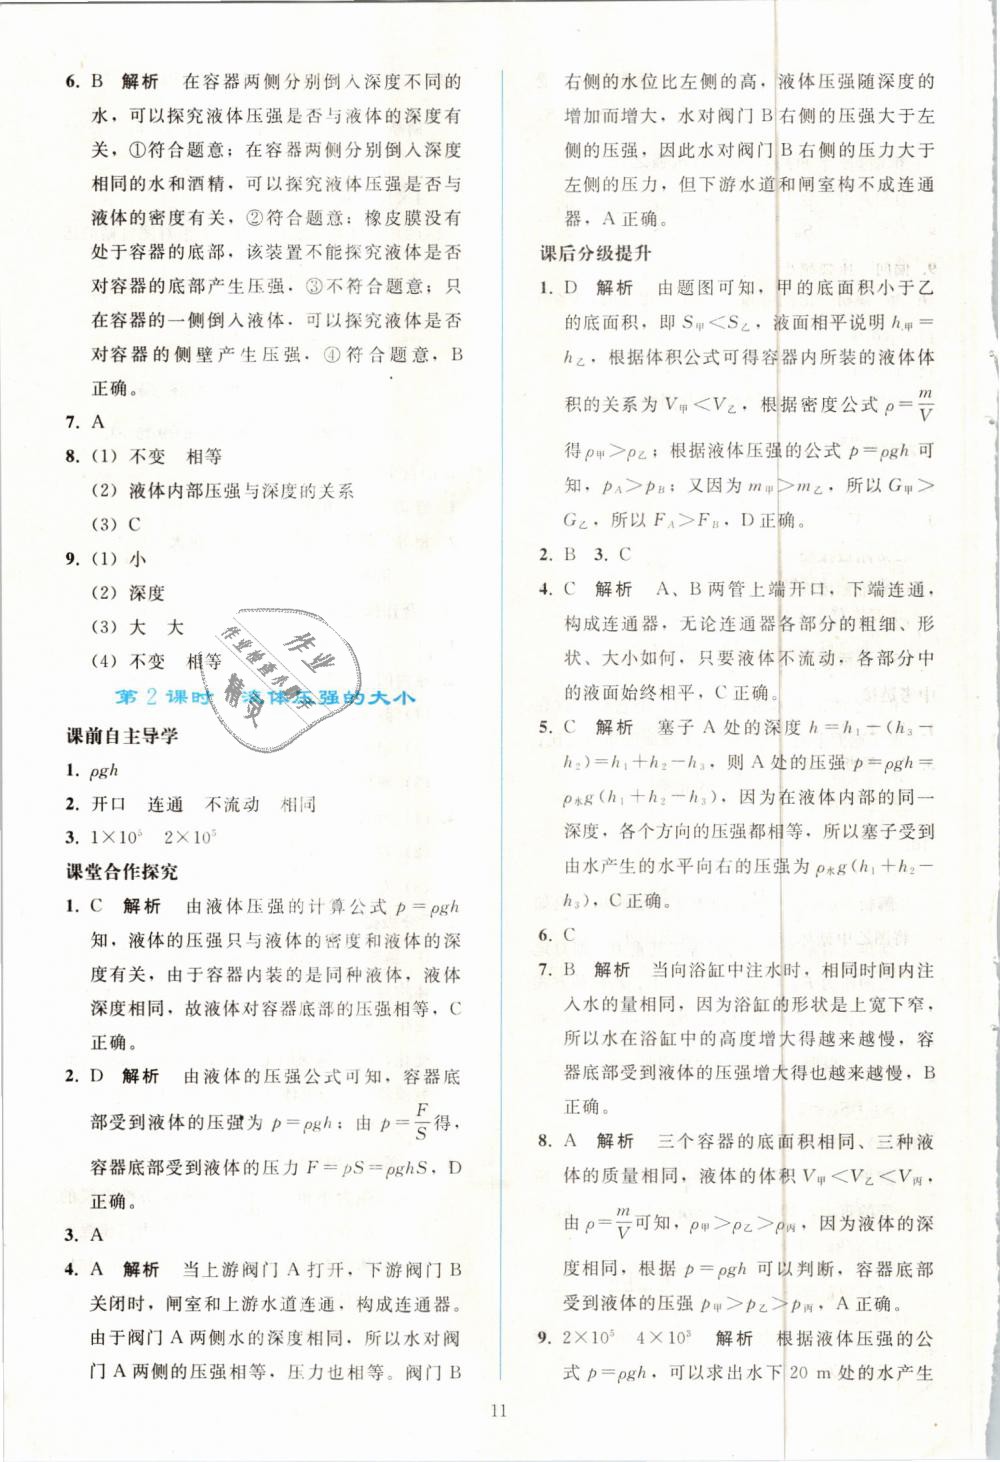 6. B 解析 在容器两侧分别倒入深度不同的
水，可以探究液体压强是否与液体的深度有
关，①符合题意；在容器两侧分别倒入深度
相同的水和酒精，可以探究液体压强是否与
液体的密度有关，②符合题意；橡皮膜没有
处于容器的底部，该装置不能探究液体是否
对容器的底部产生压强，③不符合题意；只
在容器的一侧倒入液体，可以探究液体是否
对容器的侧壁产生压强，④符合题意，B
正确。
7. A
8. (1) 不变 相等
(2) 液体内部压强与深度的关系
(3) C
9. (1) 小
(2) 深度
(3) 大 大
(4) 不变 相等
第2课时 液体压强的大小
课前自主导学
1. ρgh
2. 开口 连通 不流动 相同
3. 1×10⁵ 2×10⁵
课堂合作探究
1. C 解析 由液体压强的计算公式 p=ρgh
知，液体的压强只与液体的密度和液体的深
度有关，由于容器内装的是同种液体，液体
深度相同，故液体对容器底部的压强相等，C
正确。
2. D 解析 由液体的压强公式可知，容器底
部受到液体的压强为 p=ρgh；由 p=F/S得，
容器底部受到液体的压力 F=pS=ρghS，D
正确。
3. A
4. A 解析 当上游阀门 A 打开，下游阀门 B
关闭时，闸室和上游水道连通，构成连通器。
由于阀门 A 两侧水的深度相同，所以水对阀
门 A 两侧的压强相等，压力也相等。阀门 B
右侧的水位比左侧的高，液体压强随深度的
增加而增大，水对阀门 B 右侧的压强大于左
侧的压强，因此水对阀门 B 右侧的压力大于
左侧的压力，但下游水道和闸室构不成连通
器，A 正确。
课后分级提升
1. D 解析 由题图可知，甲的底面积小于乙
的底面积，即 S甲<S乙，液面相平说明 h甲=
h乙，根据体积公式可得容器内所装的液体体
积的关系为 V甲<V乙，根据密度公式 ρ=m/V
得ρ甲>ρ乙；根据液体压强的公式 p=ρgh 可
知，pA>pB；又因为 m甲>m乙，所以 G甲>
G乙，所以 FA>FB，D 正确。
2. B 3. C
4. C 解析 A、B 两管上端开口，下端连通，
构成连通器，无论连通器各部分的粗细、形
状、大小如何，只要液体不流动，各部分中
的液面始终相平，C 正确。
5. C 解析 塞子 A 处的深度 h=h₁-(h₃-
h₂)=h₁+h₂-h₃，则 A 处的压强 p=ρgh=
ρ水g(h₁+h₂-h₃)，因为在液体内部的同一
深度，各个方向的压强都相等，所以塞子受到
由水产生的水平向右的压强为 ρ水g(h₁+h₂-
h₃)，C 正确。
6. C
7. B 解析 当向浴缸中注水时，相同时间内注
入水的量相同，因为浴缸的形状是上宽下窄，
所以水在浴缸中的高度增大得越来越慢，容
器底部受到液体的压强增大得也越来越慢，B
正确。
8. A 解析 三个容器的底面积相同、三种液
体的质量相同，液体的体积 V甲<V乙<V丙，
由 ρ=m/V可知，ρ甲>ρ乙>ρ丙，因为液体的深
度相同，根据 p=ρgh 可以判断，容器底部
受到液体的压强 p甲>p乙>p丙，A 正确。
9. 2×10⁵ 4×10³ 解析 根据液体压强的公
式 p=ρgh，可以求出水下 20 m 处的水产生
11
作业
作业检查小助手
精灵